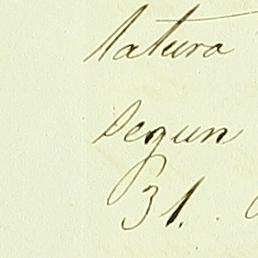 latura
segun
31.